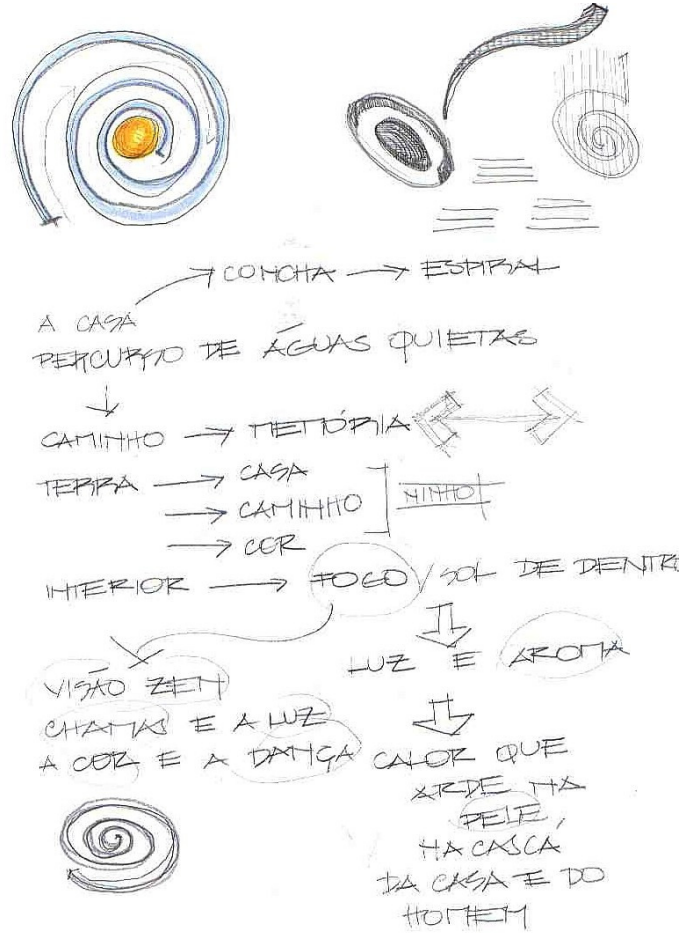 CONCHA → ESPIRAL
A CASA
PERCURSO DE ÁGUAS QUIETAS
CAMINHO → MEMÓRIA
TERRA → CASA
→ CAMINHO
NINHO
→ COR
INTERIOR → FOGO / SOL DE DENTRO
LUZ E AROMA
VISÃO ZEN
CHAMAS E A LUZ
A COR E A DANÇA
CALOR QUE
ARDE NA
PELE,
NA CASCA
DA CASA E DO
HOMEM